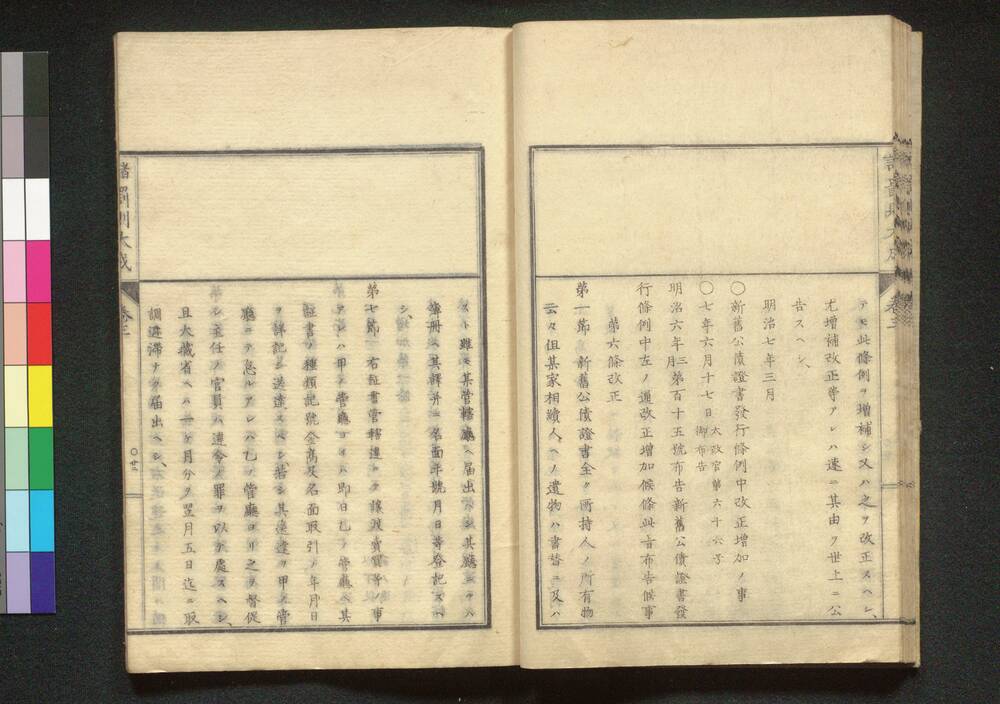 テモ此條例ヲ増補シ又ハ之ヲ改正スヘシ、
尤増補改正等アレハ速ニ其由ヲ世上ニ公
告スヘシ、
明治七年三月
〇新舊公債證書發行條例中改正增加ノ事
〇七年六月十七日 太政官第六十六号御布告
明治六年三月第百十五號布告新舊公債證書發
行條例中左ノ通改正增加候條此旨布告候事
第六條改正
第一節 新舊公債證書全ク所持人ノ所有物
云々但其家相續人ヘノ遺物ハ書替ニ及ハ
スト雖モ其管轄廳ヘ届出ヘシ其廳ニテハ
簿冊ヘ其譯并ニ名面年號月日等登記スヘ
シ、
第七節 右証書管轄違ヒノ讓渡賣買等ノ事
アレハ甲ノ管廳ヨリハ即日乙ノ管廳ヘ其
証書ノ種類記號金高及名面取引ノ年月日
ヲ詳記シ送達スヘシ若シ其遞達ヲ甲ノ管
廳ニテ怠ルアレハ乙ノ管廳ヨリ之ヲ督促
シ主任ノ官員ハ違令ノ罪ヲ以テ處スヘシ、
且大藏省ヘハ一ケ月分ヲ翌月五日迄ニ取
調遅滞ナク届出ヘシ、
諸罰則大成
卷三
〇廿二